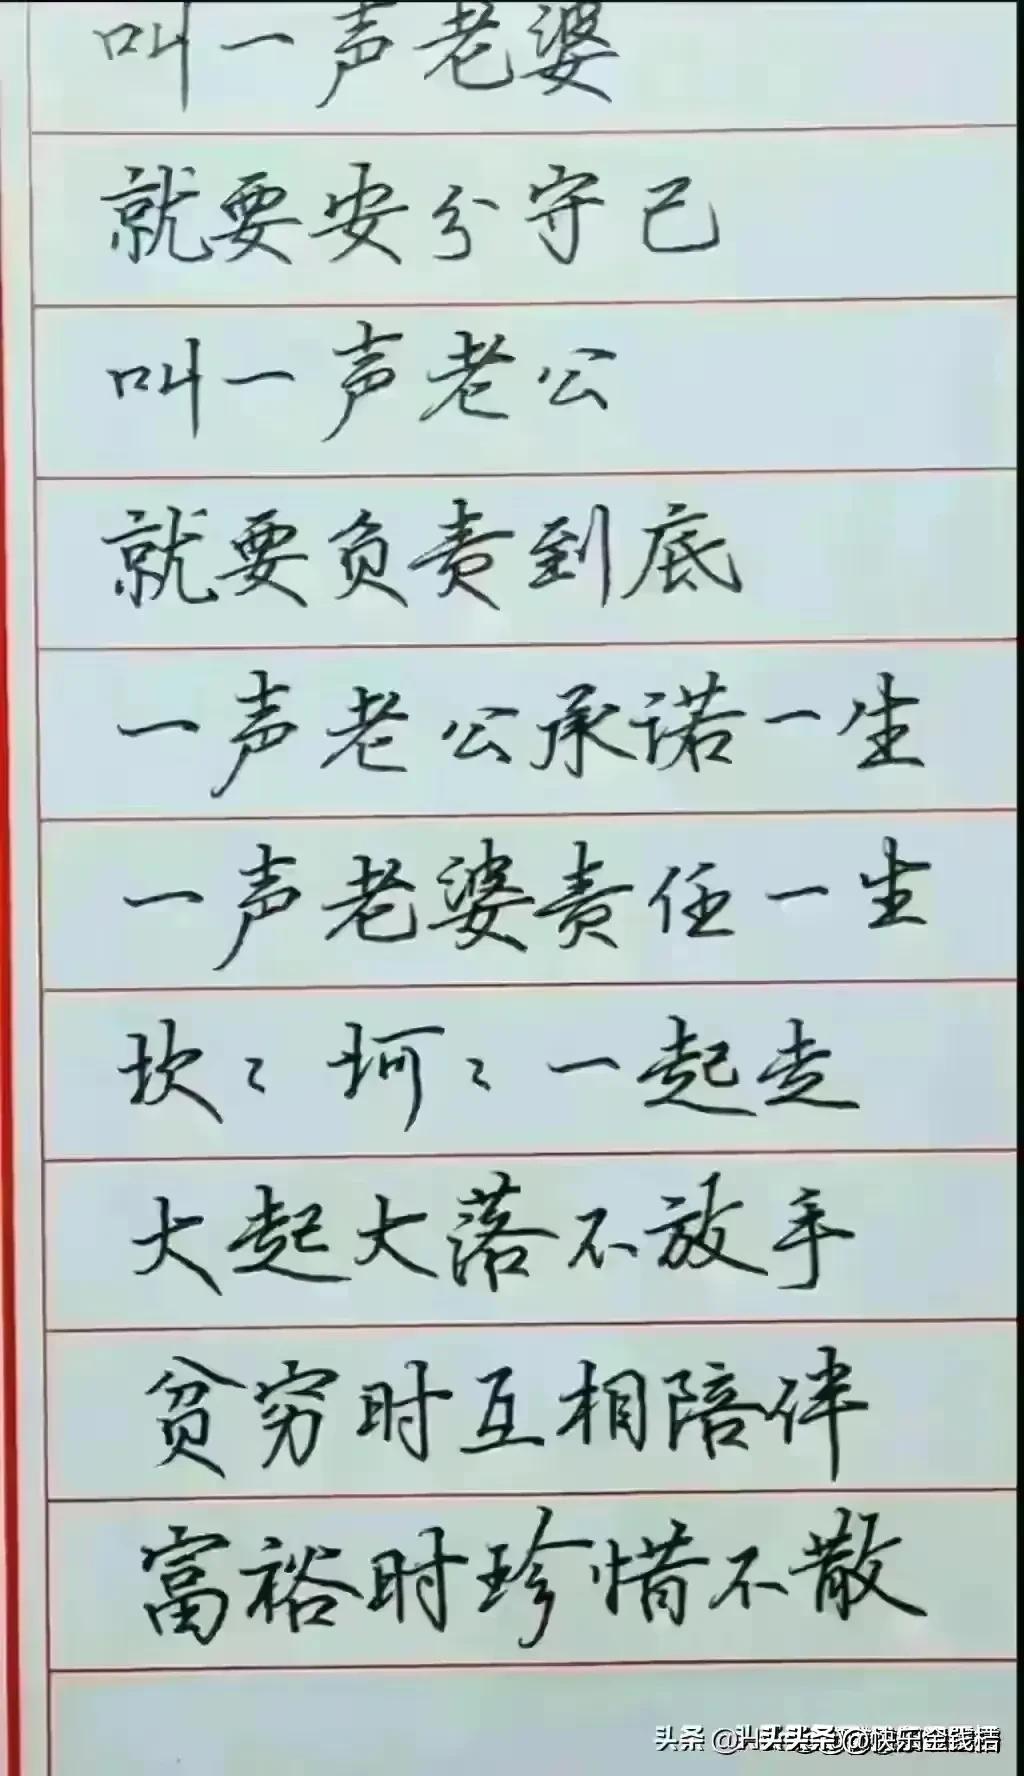 叫一声老婆
就要安分守己
叫一声老公
就要负责到底
一声老公承诺一生
一声老婆责任一生
坎〻坷〻一起走
大起大落不放手
贫穷时互相陪伴
富裕时珍惜不散
头条 @快乐金钱桔